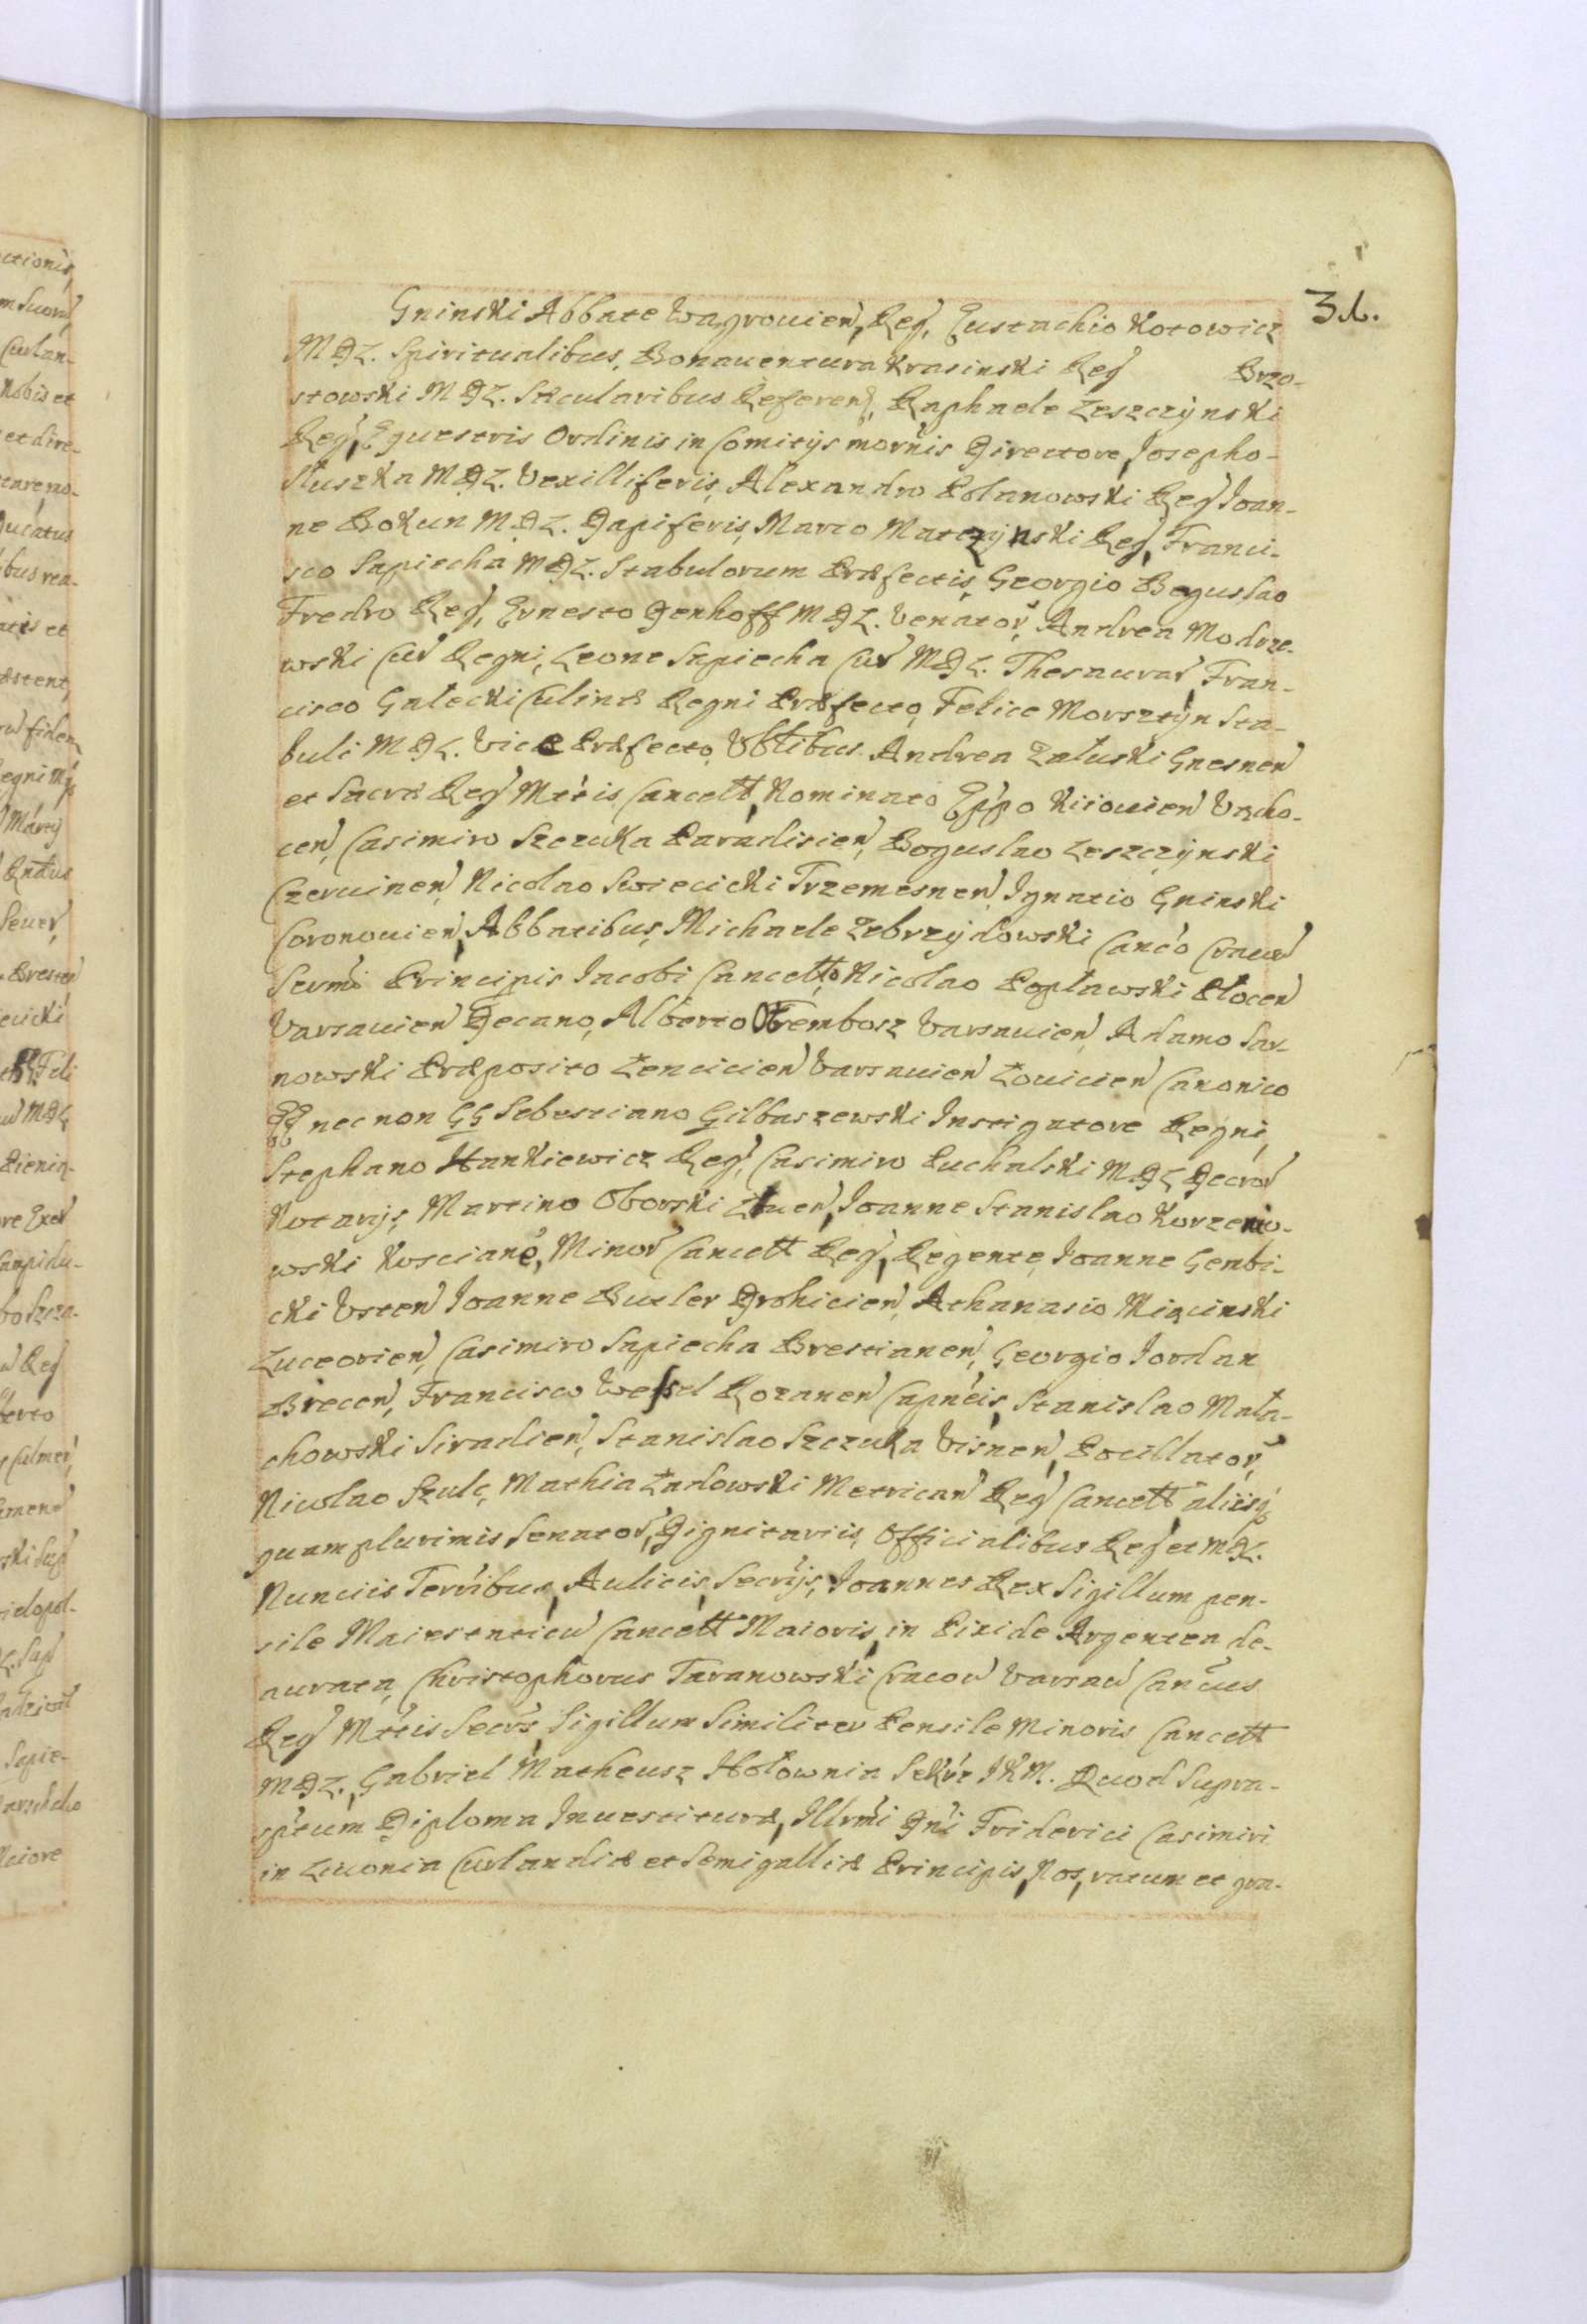 31.
Gninski Abbate Wagrouien, Reg, Eustachio Kotowicz
MDL. Spiritualibus, Bonauentura Krasinski Reg Brzo-
stowski MDL. Sæcularibus Referen, Raphaele Leszczynski
Reg, Equestris Ordinis in Comitijs mornis Directore, Josepho-
Sluszka MDL. Vexilliferis, Alexandro Polanowski Reg Joan-
ne Bokun MDL. Dapiferis, Marco Matczynski Reg, Franci-
sco Sapiecha MDL. Stabulorum Præfectis, Georgio Boguslao
Fredro Reg, Ernesto Denhoff MDL. Venator, Andrea Modrze-
wski Cur Regni, Leone Sapiecha Cur MDL. Thesaurar Fran-
cisco Gałecki Culinæ Regni Præfecto, Felice Morsztyn Sta-
buli MDL. Vice Præfecto, Vbltibus. Andrea Załuski Gnesnen
et Sacræ Reg Mttis Cancell, Nominato Eppo Kiiouien Vącho-
cen, Casimiro Szczuka Paradisien, Boguslao Leszczynski
Czeruinen, Nicolao Swiecicki Trzemesnen, Ignatio Gninski
Coronouien, Abbatibus, Michaele Zebrzydowski Canco Cracou
Sermi Principis Jacobi Cancello, Nicolao Popławski Plocen
Varsauien Decano, Alberto Trembosz Varsauien, Adamo Sar-
nowski Præposito Łencicien Varsauien Łouicien Canonico
nec non GG Sebastiano Gilbaszewski Instigatore Regni,
Stephano Hankiewicz Reg, Casimiro Puchalski MDL Decror
Notarijs, Martino Oborski Liuen, Joanne Stanislao Korzenio-
wski Koscianen, Minor Cancell Reg, Regente, Joanne Gembi-
cki Vsten Joanne Butler Drohicien, Athanasio Miączinski
Luceorien, Casimiro Sapiecha Brestianen, Georgio Jordan
Brecen, Francisco Wessel Rozanen Capneis, Stanislao Mała-
chowski Siradien, Stanislao Szczuka Visnen, Pocillator,
Nicolao Szulc, Mathia Ładowski Metrican Reg Cancell aliisq
quamplurimis Senator, Dignitariis, Officialibus Reg et MDL.
Nunciis Terribus, Aulicis, Secrijs, Joannes Rex Sigillum pen-
sile Maiestaticu Cancell Maioris, in Pixide Argentea de-
aurata, Christophorus Taranowski Cracou Varsau Cancus
Reg Mttis Secrs, Sigillum Similiter Pensile Minoris Cancell
MDL., Gabriel Matheusz Hołownia Sekrt JKM. Quod Supra-
sptum Diploma Inuestituræ, Illrmi Dni Friderici Casimiri
in Liuonia Curlandiæ et Semigalliæ Principis, Nos, ratum et gra-